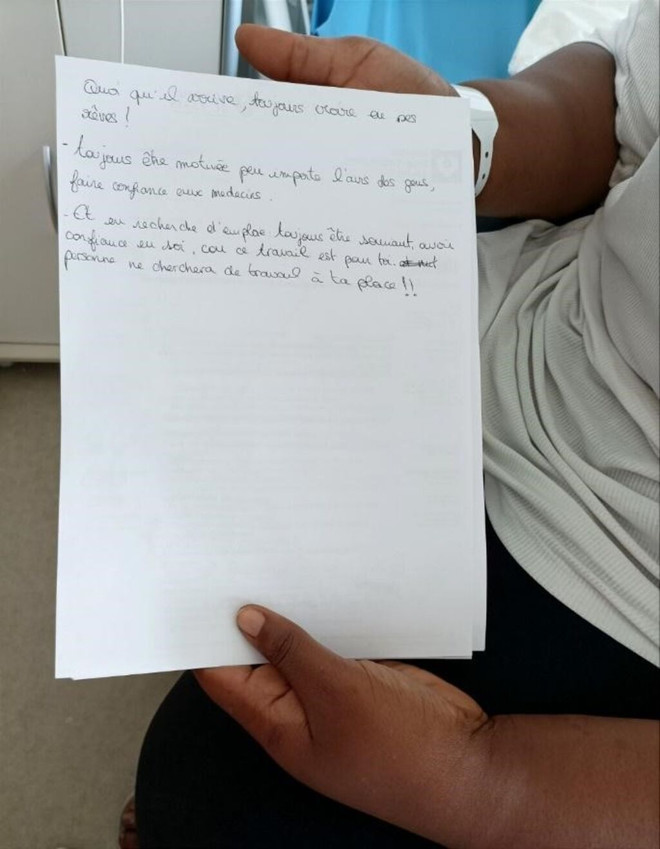 Quoi qu'il arrive, toujours croire en ses
rêves !
- toujours être motivée peu importe l'avis des gens,
faire confiance aux medecins.
- Et en recherche d'emploi toujours être souriant, avoir
confiance en soi, car ce travail est pour toi
personne ne cherchera de travail à ta place !!